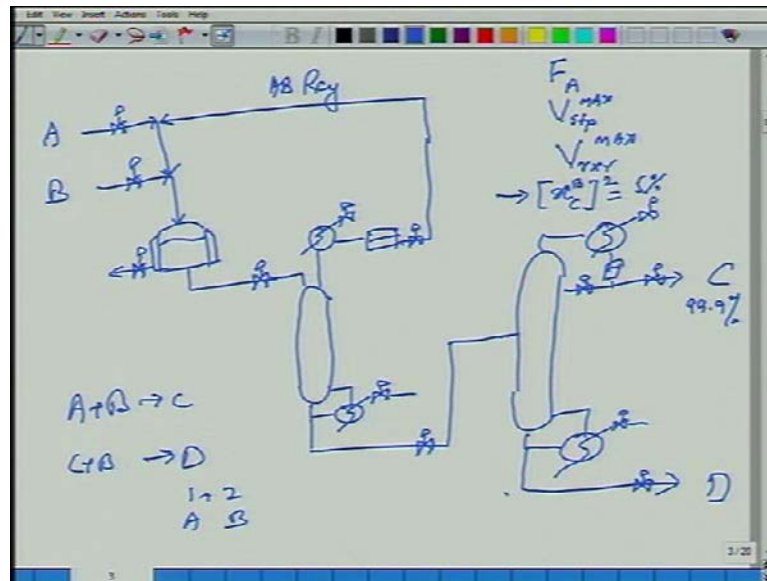 Edit View Insert Actions Tools Help
B I
AB Rcy
A
B
F_A
V_stp^MAX
V_rxr^MAX
→ [x_C^B]^2 = 5%
C
99.9%
A+B → C
C+B → D
1 + 2
A B
D
3/20
3